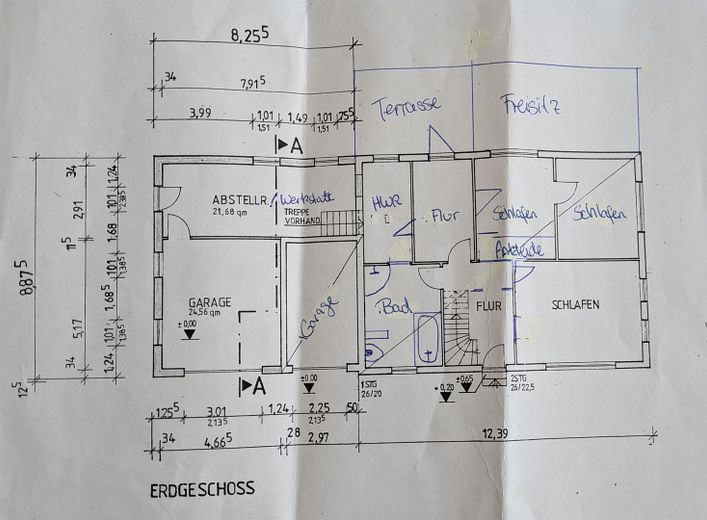 8,25⁵
34
7,91⁵
3,99
1,01
1,49
1,01
75⁵
1,51
1,51
A
Terrasse
Freisitz
34
1,24
2,91
1,01
1,385
1,68
11⁵
8,87⁵
1,01
1,385
1,68⁵
5,17
1,01
1,385
34
1,24
12⁵
ABSTELLR./Werkstatt
21,68 qm
TREPPE
VORHAND.
HWR
Flur
Schlafen
Schlafen
Ankleide
GARAGE
24,56 qm
± 0,00
Garage
Bad
FLUR
SCHLAFEN
A
±0,00
1STG
26/20
+ 0,20
±0,65
2STG
26/22,5
1,25⁵
3,01
2,13⁵
1,24
2,25
2,13⁵
50
34
4,66⁵
28
2,97
12,39
ERDGESCHOSS